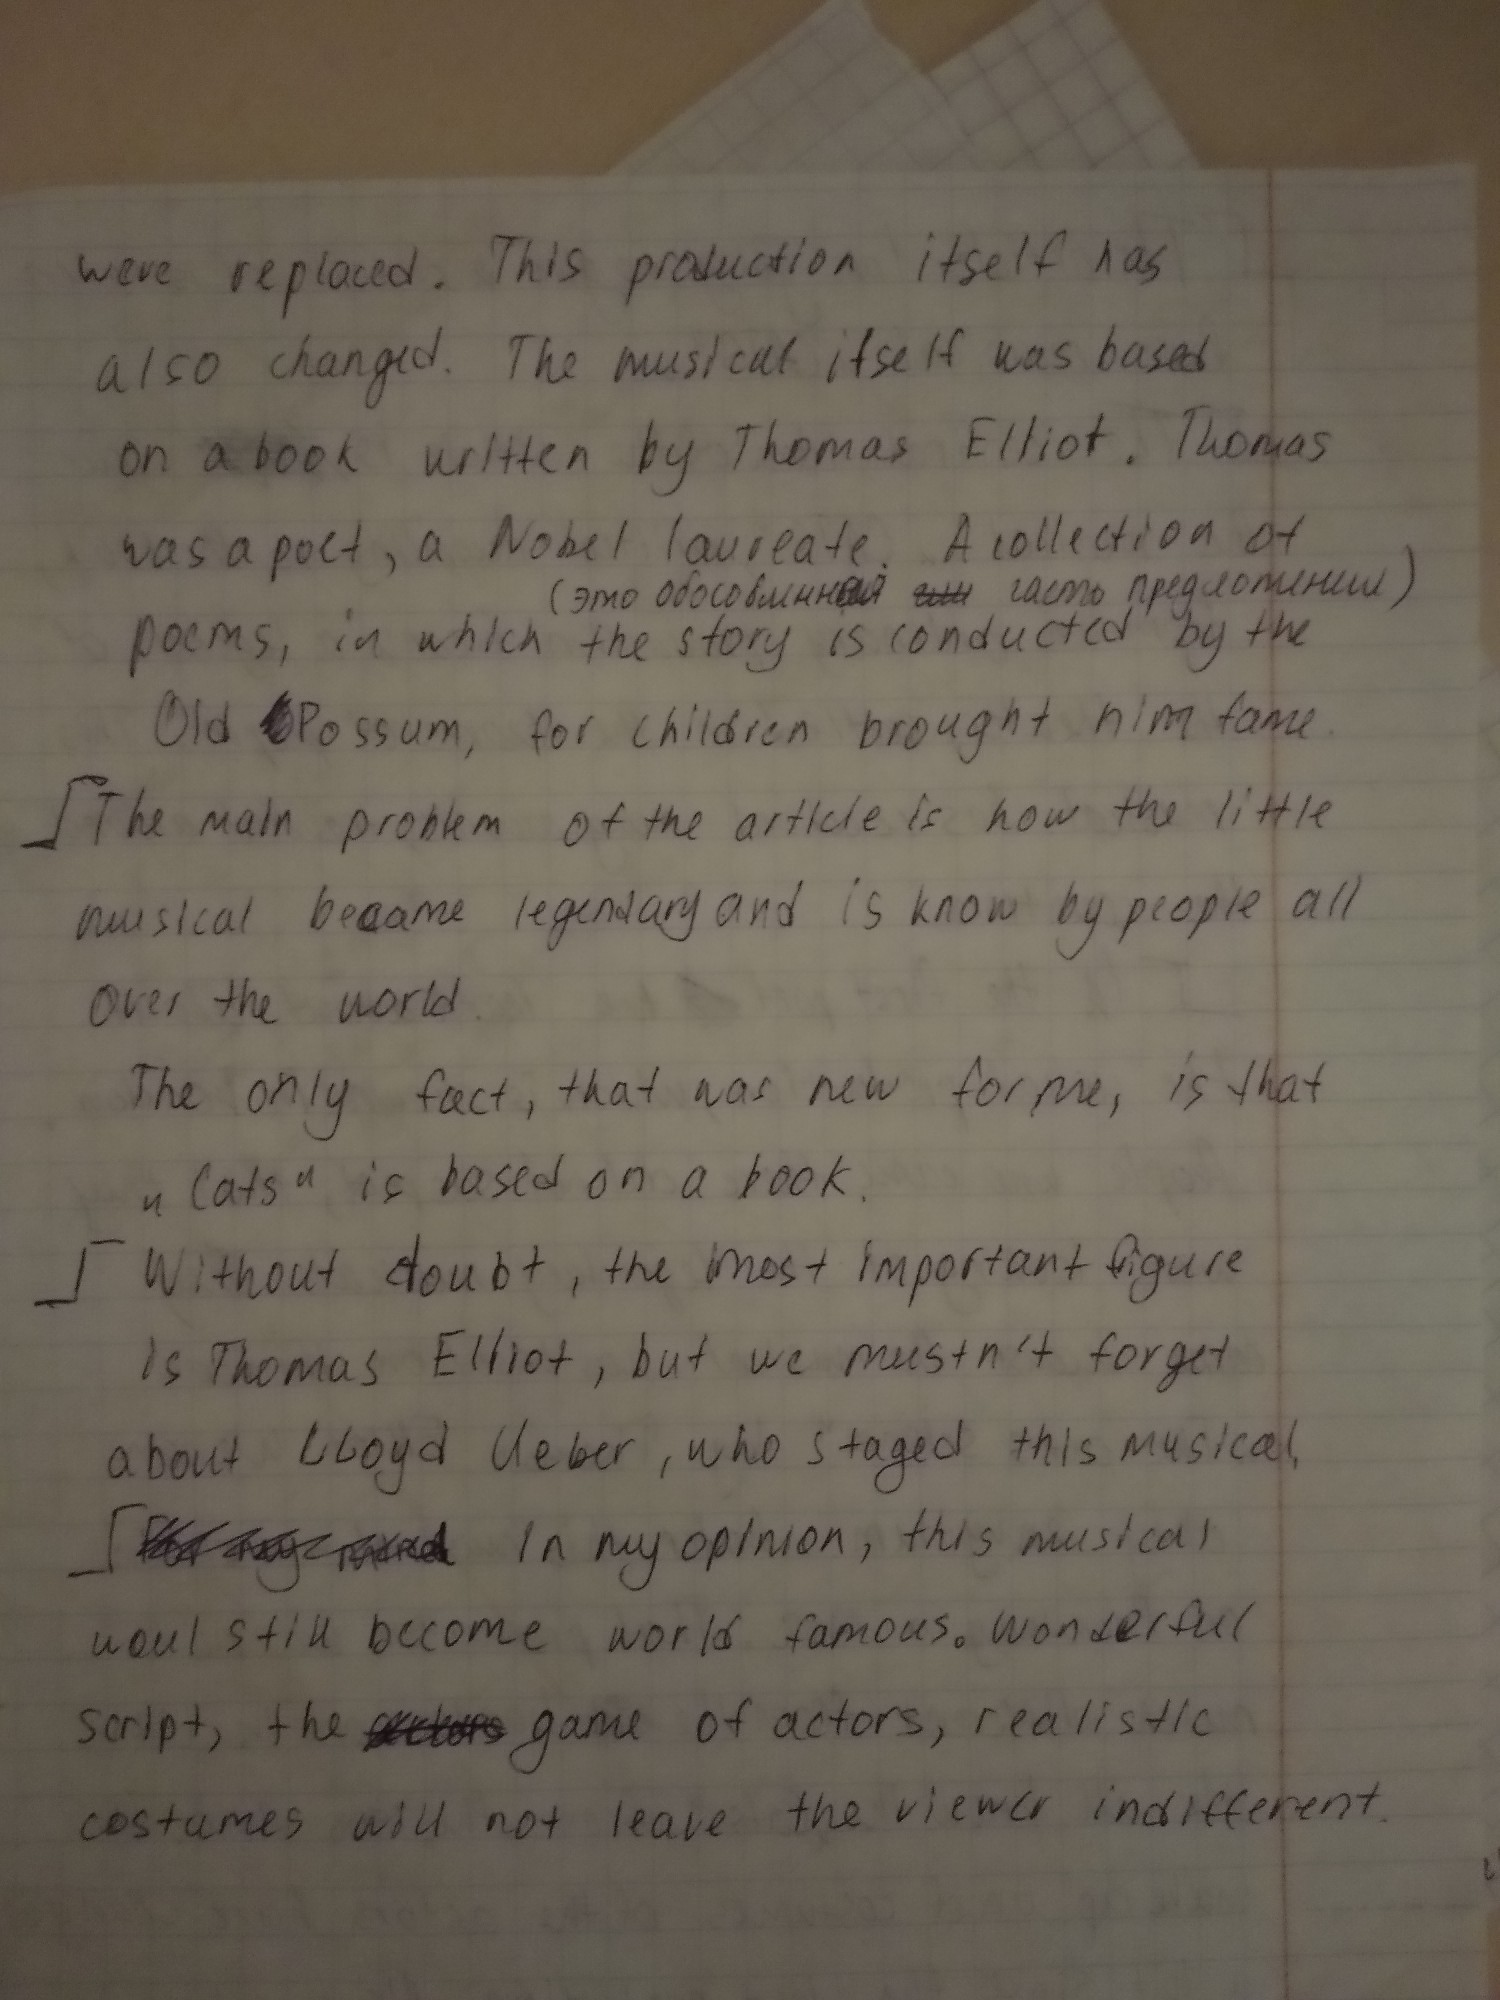 were replaced. This production itself has
also changed. The musical itself was based
on a book written by Thomas Elliot. Thomas
was a poet, a Nobel laureate. A collection of
(это обособленный часть предложения)
poems, in which the story is conducted by the
Old Possum, for children brought him fame.
The main problem of the article is how the little
musical became legendary and is know by people all
over the world.
The only fact, that was new for me, is that
„Cats" is based on a book.
Without doubt, the most important figure
is Thomas Elliot, but we mustn't forget
about Lloyd Ueber, who staged this musical,
In my opinion, this musical
woul still become world famous. Wonderful
script, the game of actors, realistic
costumes will not leave the viewer indifferent.